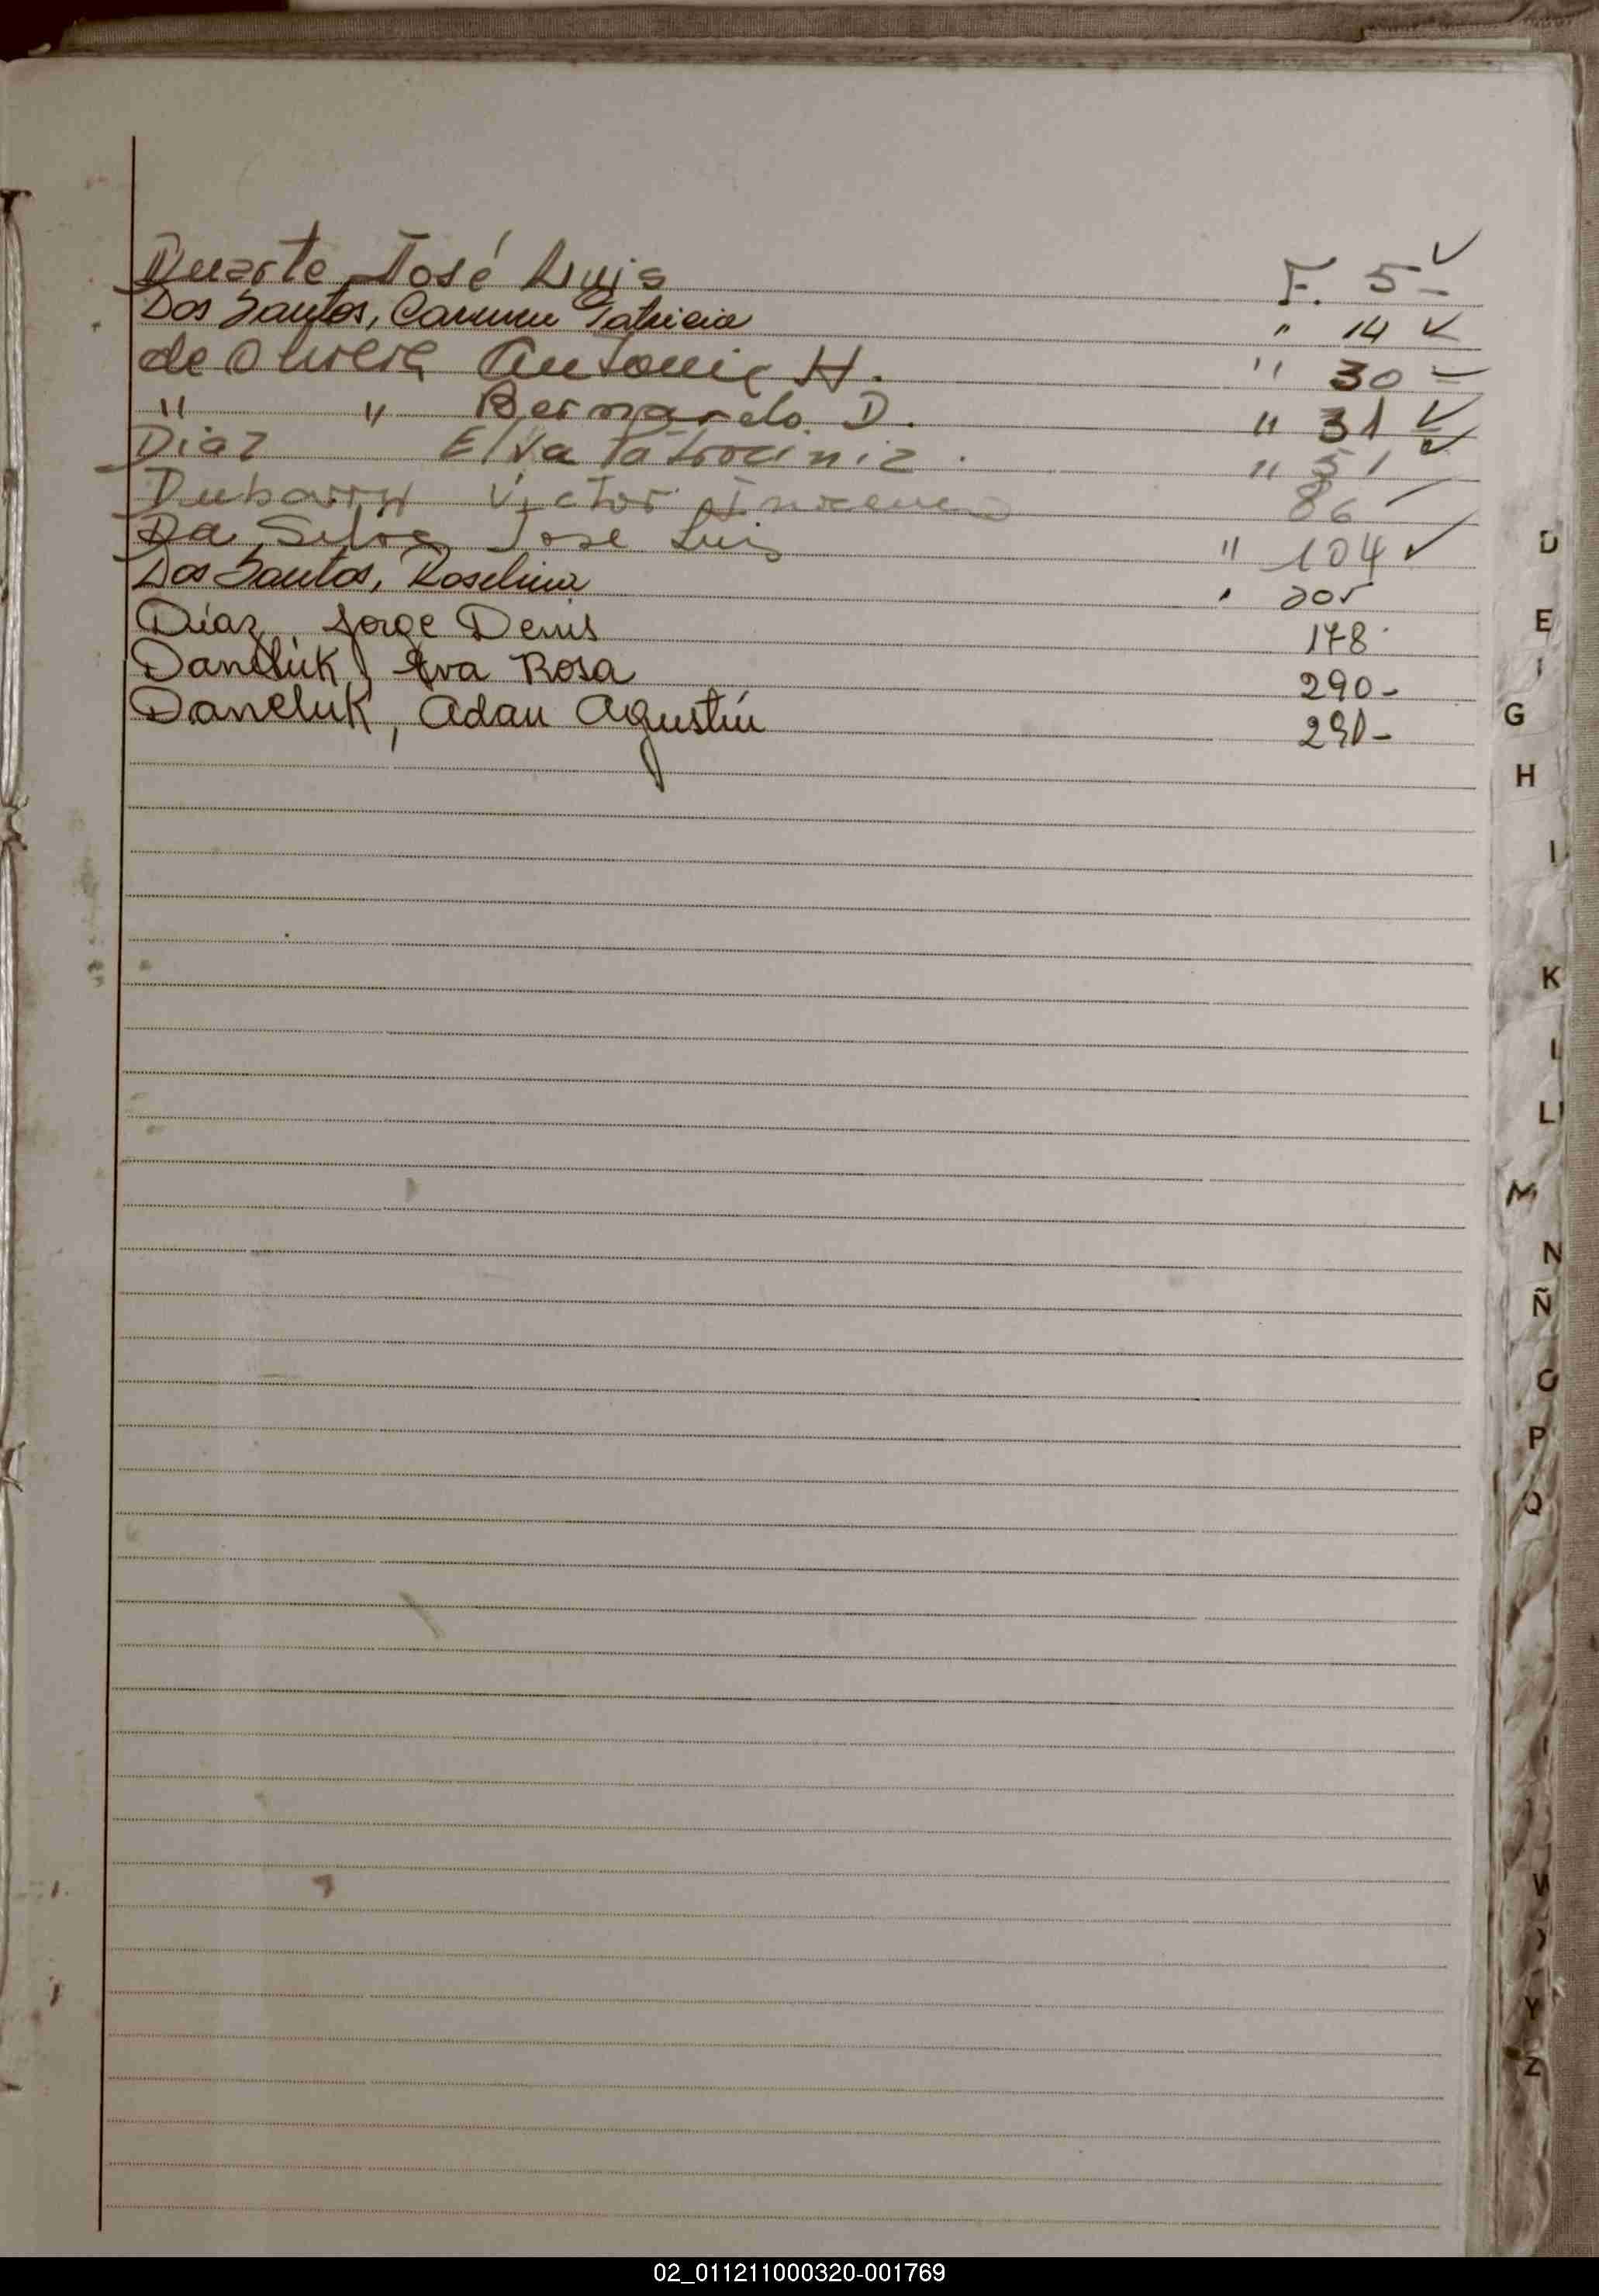 Duarte José Luis F. 5 -
Dos Santos, Carmen Patricia " 14
de Olivera Antonia H. " 30 -
" " Bernardo D. " 31
Diaz Elva Patrocinia . " 51
Dubarry Victor 86
Da Silva Jose Luis " 104
Dos Santos, Roselina " 205
Diaz, Jorge Denis 178
Daneluk, Eva Rosa 290-
Daneluk, Adan Agustín 291-
D
E
I
G
H
I
K
L
L
M
N
Ñ
O
P
Q
Y
Z
02_011211000320-001769